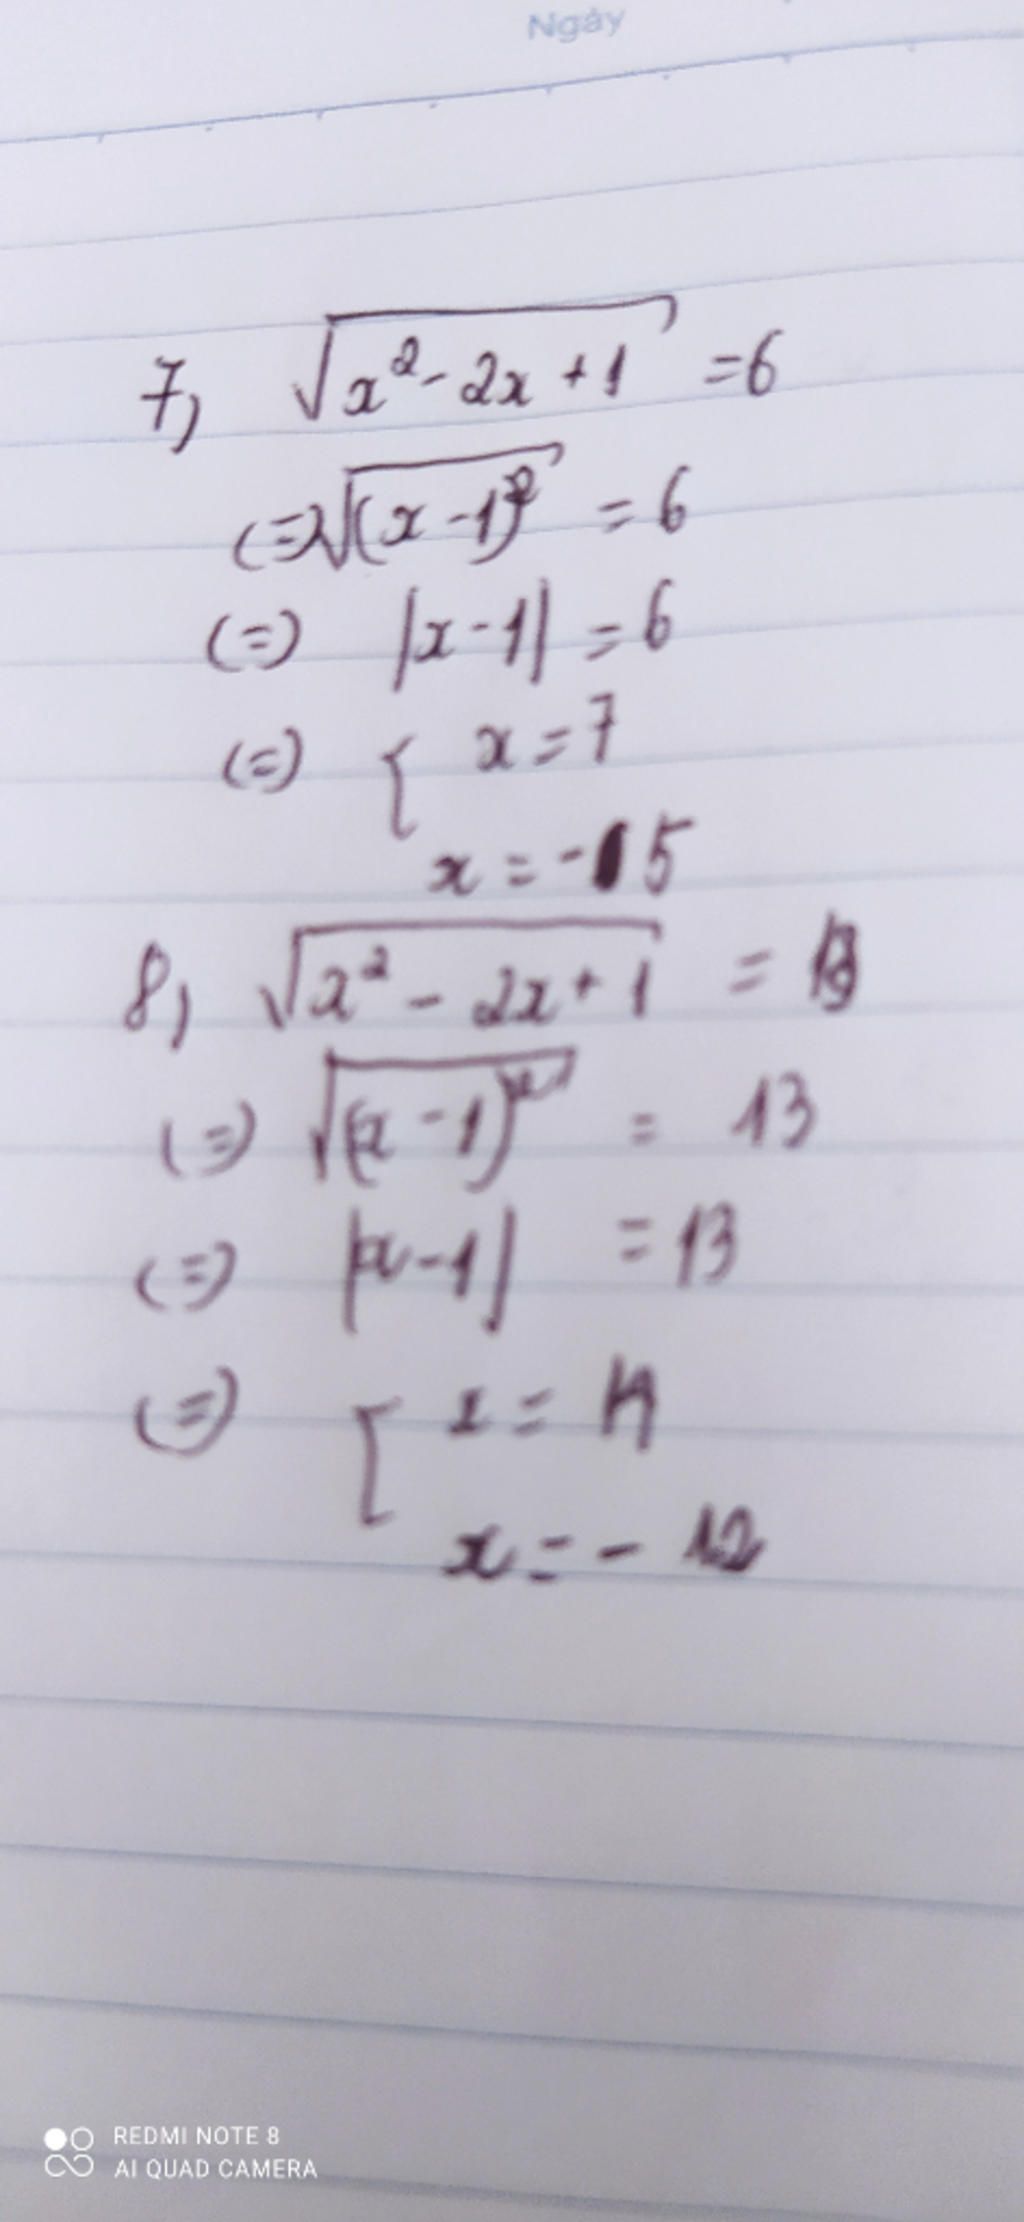 Ngày
7, √(x² - 2x + 1) = 6
(=) √(x - 1)² = 6
(=) |x - 1| = 6
(=) [ x = 7
x = - 5
8, √(x² - 2x + 1) = 13
(=) √(x - 1)² = 13
(=) |x - 1| = 13
(=) [ x = 14
x = - 12
REDMI NOTE 8
AI QUAD CAMERA